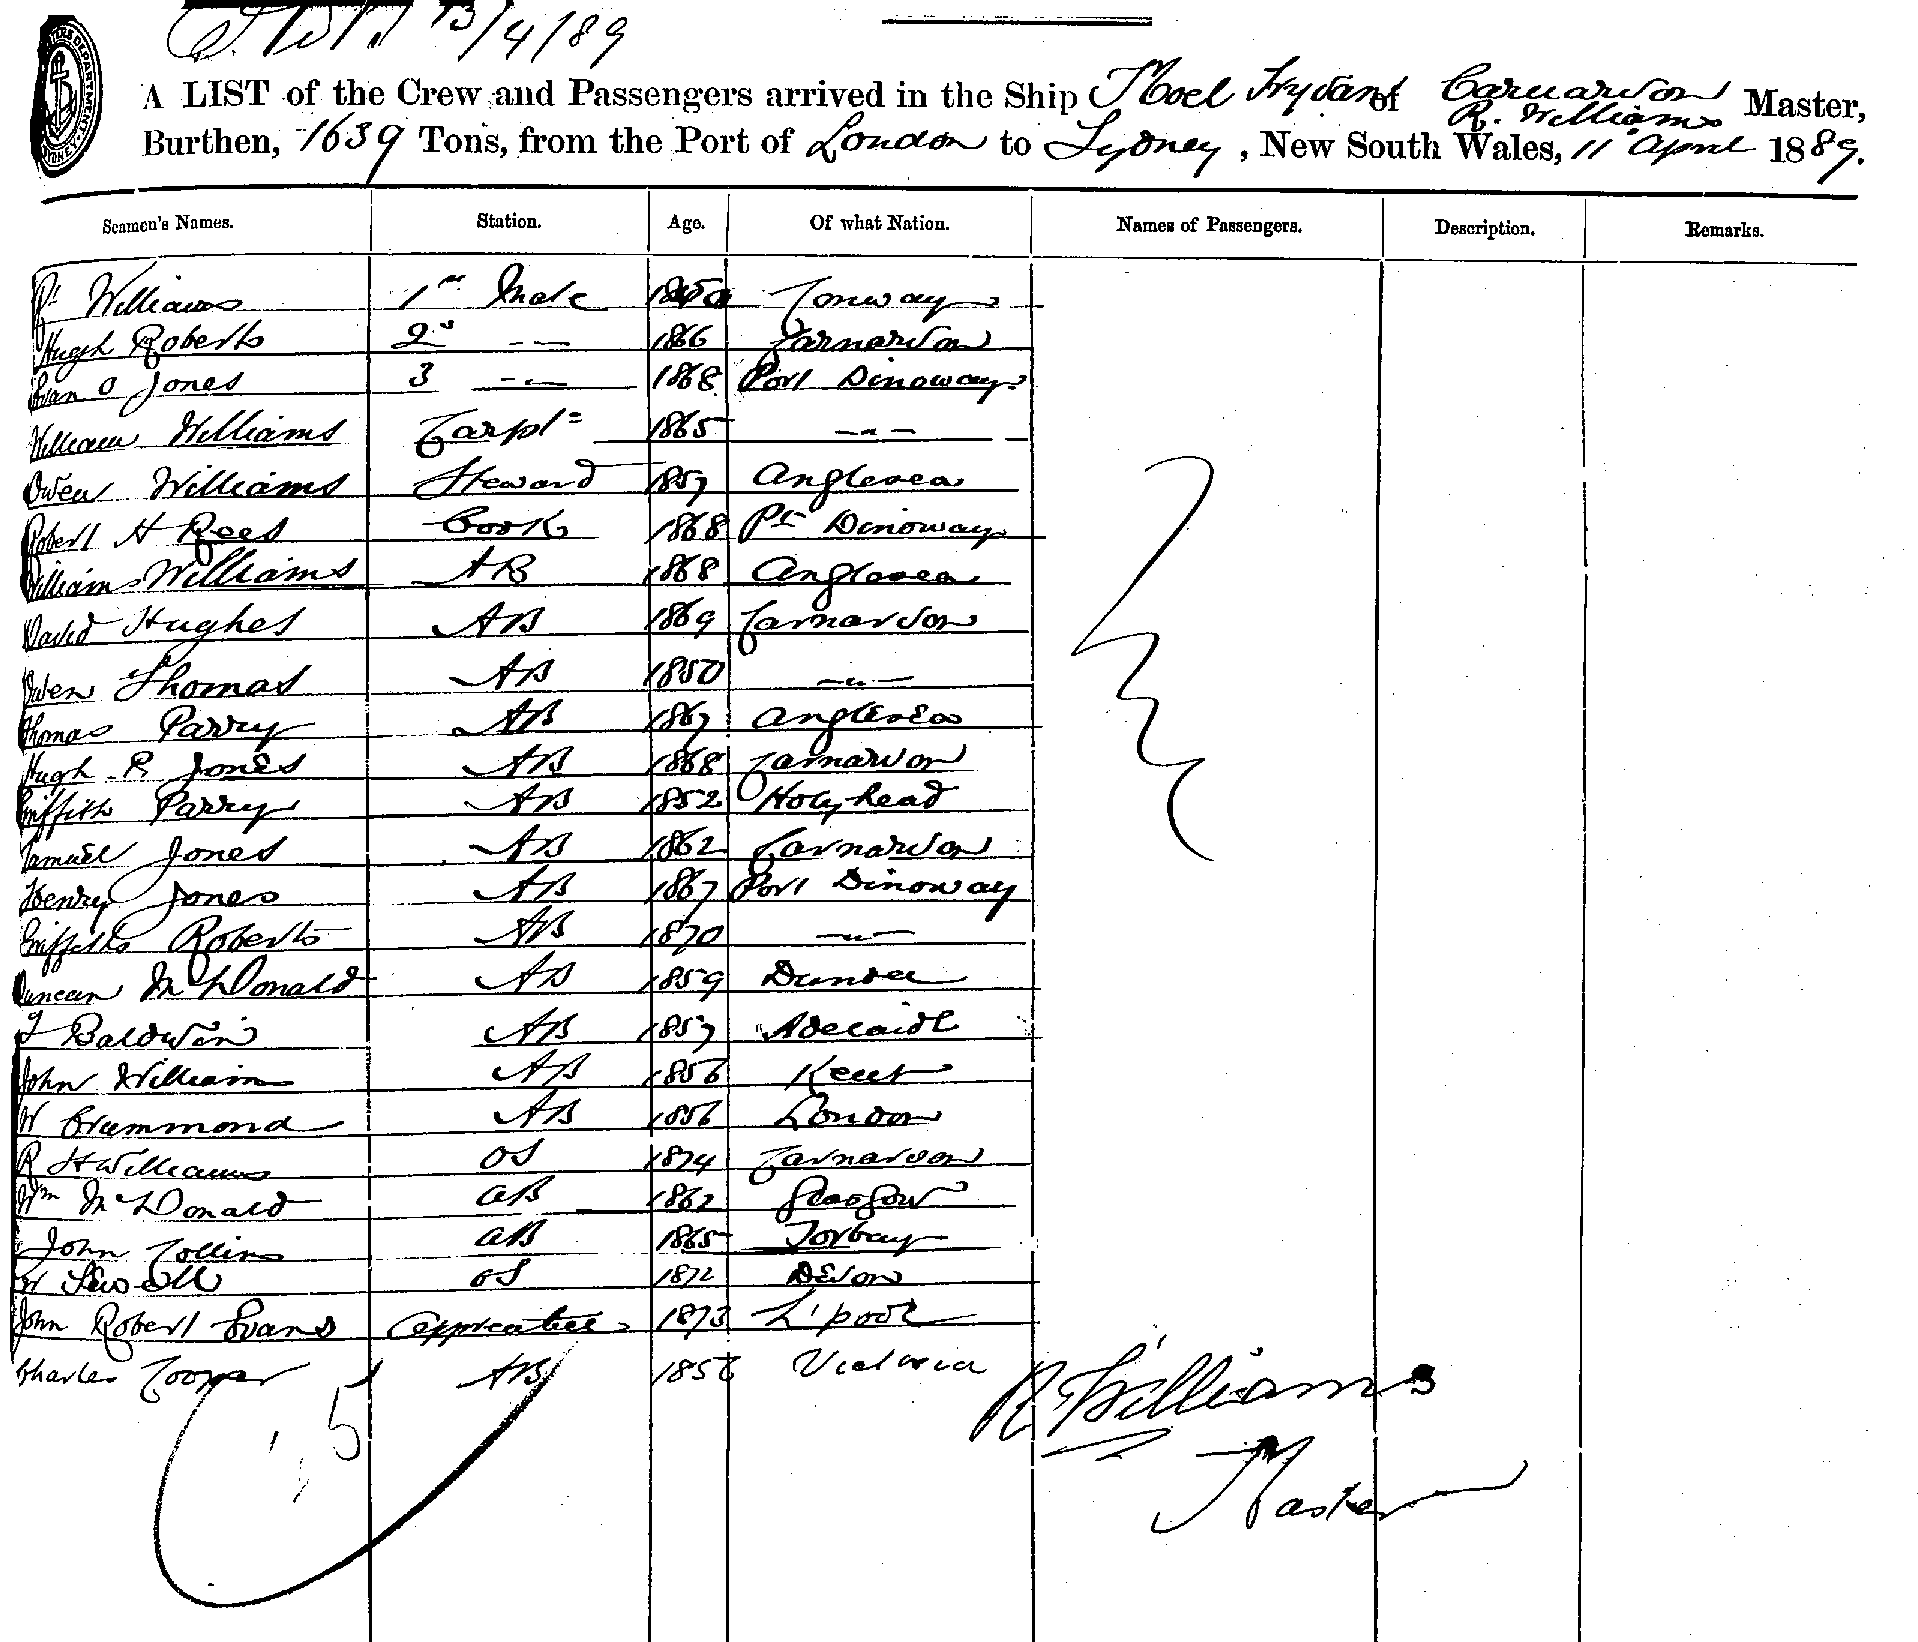 13/4/89
A LIST of the Crew and Passengers arrived in the Ship Moel Tryvan of Carnarvon R. Williams Master,
Burthen, 1639 Tons, from the Port of London to Sydney, New South Wales, 11 April 1889.
Seamen's Names. Station. Age. Of what Nation. Names of Passengers. Description. Remarks.
Williams 1st Mate Conway
Hugh Roberts 2d -"- 1866 Carnarvon
Evan O Jones 3 -"- 1868 Port Dinoway
William Williams Carptr 1865 -"-
Owen Williams Steward 1857 Anglesea
Robert H Rees Cook 1868 Pt Dinoway
William Williams AB 1868 Anglesea
David Hughes AB 1869 Carnarvon
Owen Thomas AB 1850 -"-
Thomas Parry AB 1867 Anglesea
Hugh R Jones AB 1868 Carnarvon
Griffith Parry AB 1852 Holyhead
Samuel Jones AB 1862 Carnarvon
Henry Jones AB 1867 Port Dinoway
Griffith Roberts AB 1870 -"-
Duncan McDonald AB 1859 Dundee
T Baldwin AB 1857 Adelaide
John William AB 1856 Kent
W Crummond AB 1856 London
R H Williams OS 1874 Carnarvon
Wm McDonald AB 1862 Glasgow
John Collins AB 1865 Torbay
W Sewell OS 1872 Devon
John Robert Evans Apprentice 1873 L'pool
Charles Cooper AB 1856 Victoria
R Williams
Master